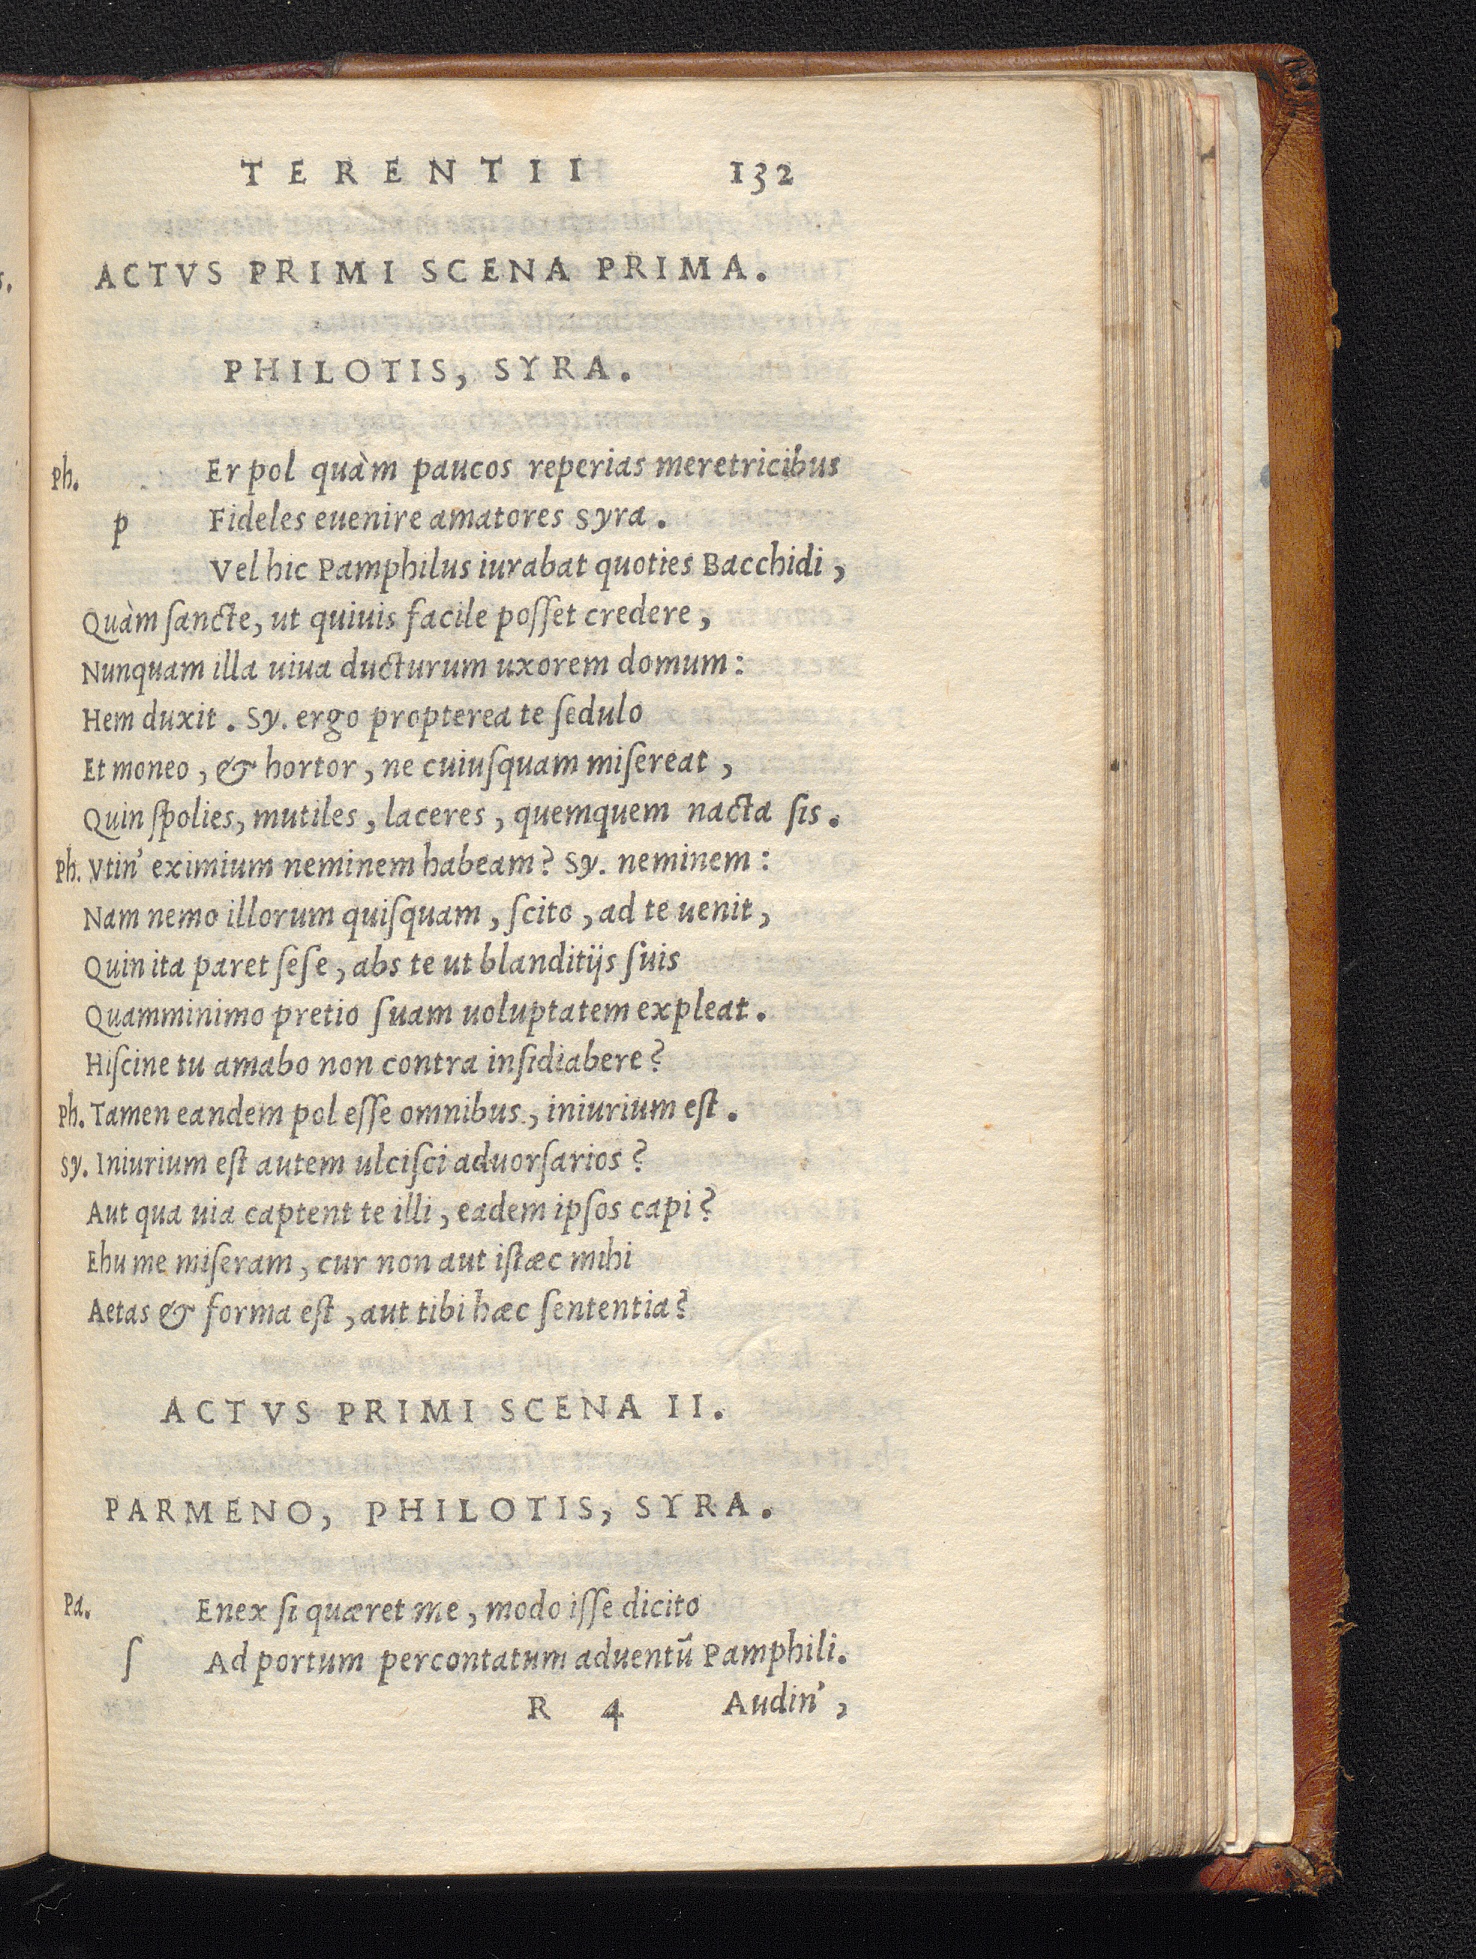 TERENTII 132
ACTVS PRIMI SCENA PRIMA.
PHILOTIS, SYRA.
Ph. Er pol quàm paucos reperias meretricibus
p Fideles euenire amatores Syra.
Vel hic Pamphilus iurabat quoties Bacchidi,
Quàm ſancte, ut quiuis facile poſſet credere,
Nunquam illa uiua ducturum uxorem domum:
Hem duxit. Sy. ergo propterea te ſedulo
Et moneo, & hortor, ne cuiuſquam miſereat,
Quin ſpolies, mutiles, laceres, quemquem nacta ſis.
Ph. Vtin' eximium neminem habeam? Sy. neminem:
Nam nemo illorum quiſquam, ſcito, ad te uenit,
Quin ita paret ſeſe, abs te ut blanditijs ſuis
Quamminimo pretio ſuam uoluptatem expleat.
Hiſcine tu amabo non contra inſidiabere?
Ph. Tamen eandem pol eſſe omnibus, iniurium eſt.
Sy. Iniurium eſt autem ulciſci aduorſarios?
Aut qua uia captent te illi, eadem ipſos capi?
Ehu me miſeram, cur non aut iſtæc mihi
Aetas & forma eſt, aut tibi hæc ſententia?
ACTVS PRIMI SCENA II.
PARMENO, PHILOTIS, SYRA.
Pa. Enex ſi quæret me, modo iſſe dicito
ſ Ad portum percontatum aduentū Pamphili.
R 4 Audin',